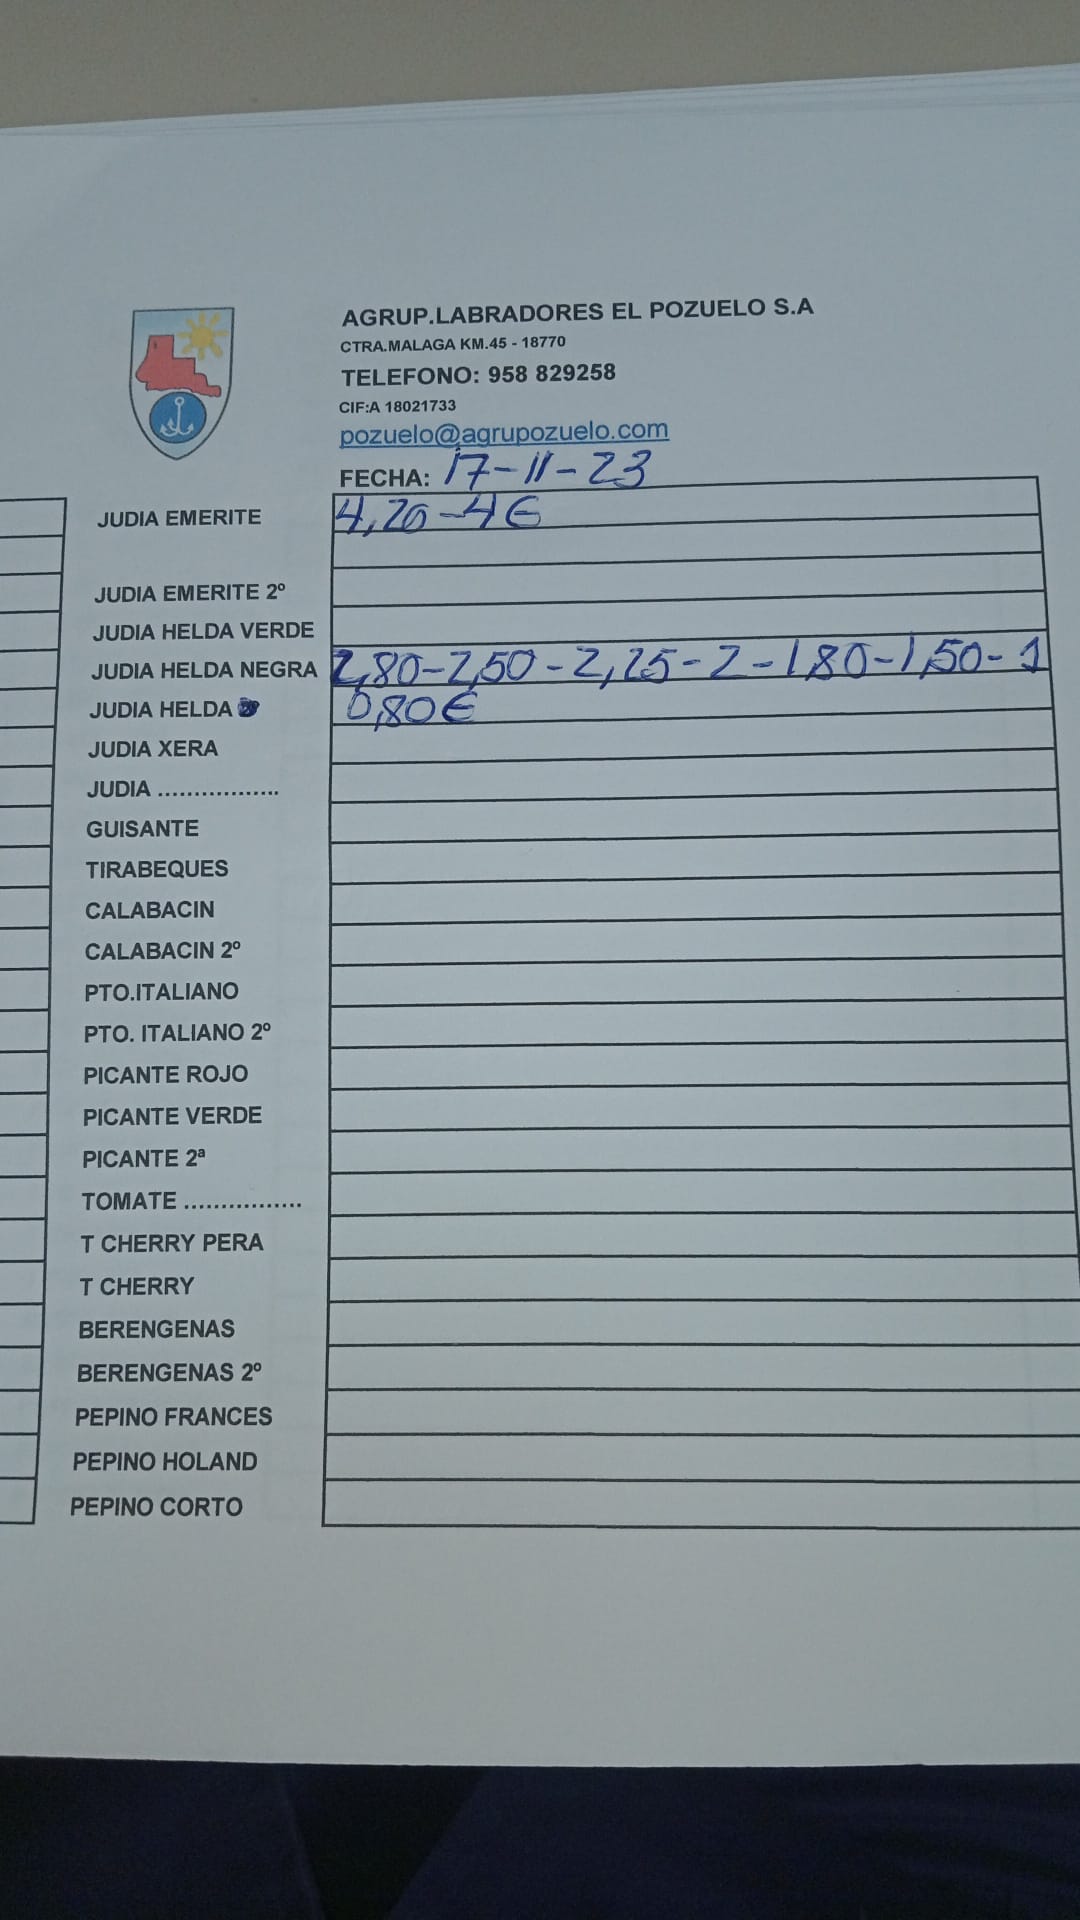 AGRUP.LABRADORES EL POZUELO S.A
CTRA.MALAGA KM.45 - 18770
TELEFONO: 958 829258
CIF:A 18021733
pozuelo@agrupozuelo.com
FECHA: 17-11-23
JUDIA EMERITE 4,20-4€
JUDIA EMERITE 2º
JUDIA HELDA VERDE
JUDIA HELDA NEGRA 2,80-2,50-2,25-2-1,80-1,50-1
JUDIA HELDA 0,80€
JUDIA XERA
JUDIA .................
GUISANTE
TIRABEQUES
CALABACIN
CALABACIN 2º
PTO.ITALIANO
PTO. ITALIANO 2º
PICANTE ROJO
PICANTE VERDE
PICANTE 2ª
TOMATE ................
T CHERRY PERA
T CHERRY
BERENGENAS
BERENGENAS 2º
PEPINO FRANCES
PEPINO HOLAND
PEPINO CORTO